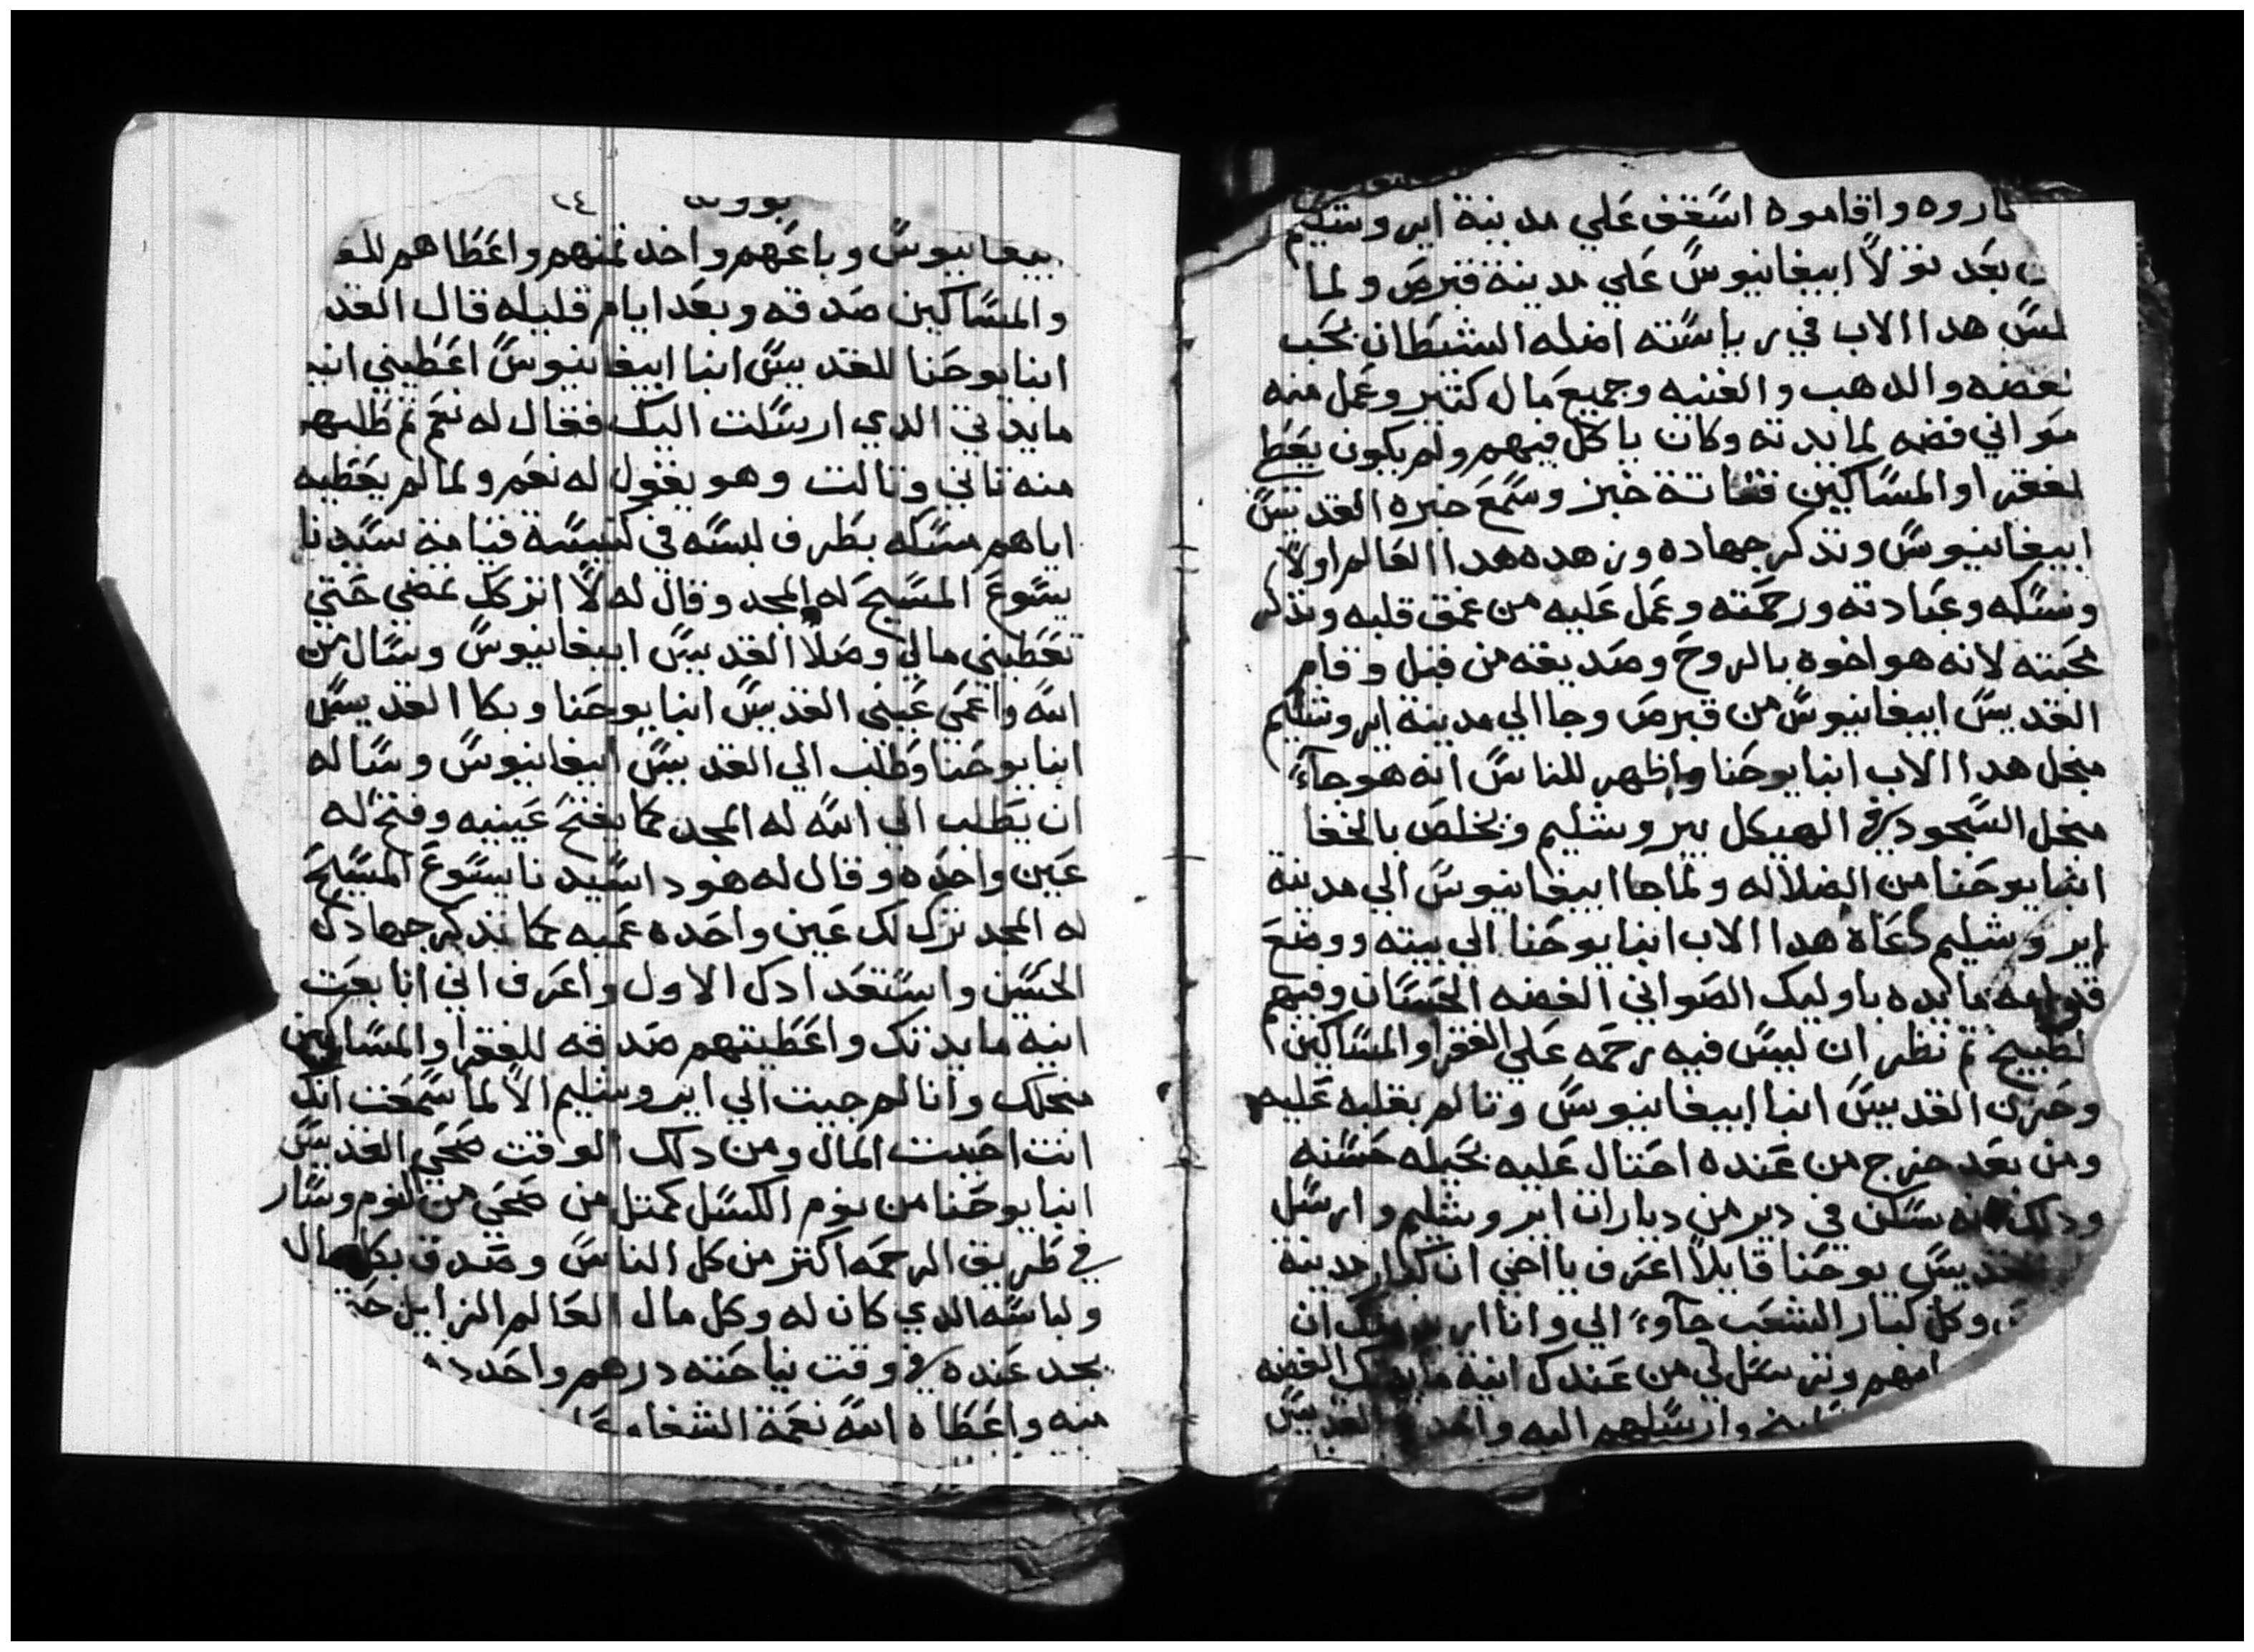 اروه واقاموه اسقف علي مدينة ايروشليم
بعد تولا ابيفانيوس علي مدينة قبرص ولما
هدا الاب في رياسته اضله الشيطان بحب
الفضه والدهب والقنيه وجميع مال كتير وعمل منه
صواني فضه لمايدته وكان ياكل فيهم ولم يكون يعط
لفقرا والمساكين فتاتة خبز وسمع خبره القديس
ابيفانيوس وتذكر جهاده وزهده هدا العالم اولا
ونسكه وعبادته ورحمته وعمل عليه من عمق قلبه وتدكر
محبته لانه هو اخوه بالروح وصديقه من قبل وقام
القديس ابيفانيوس من قبرص وجا الي مدينة ايروشليم
منجل هدا الاب انبا يوحنا واظهر للناس انه هو جآء
منجل السجود في الهيكل بيروشليم ويخلص بالخفا
انبا يوحنا من الضلاله ولما جا ابيفانيوس الي مدينة
ايروشليم دعاه هدا الاب انبا يوحنا الي بيته ووضع
قدامه مايده باوليك الصواني الفضه الحسان وفيهم
لطبيخ تم نظر ان ليس فيه رحمه علي الفقرا والمساكين
وحزن القديس انبا ابيفانيوس وتالم بقلبه عليه
ومن بعد خرج من عنده احتال عليه بحيله حسنه
ودلك انه سكن في دير من ديارات ايروشليم وارسل
القديس يوحنا قايلا اعرف يا اخي ان كبار مدينة
وكل كبار الشعب جآوء الي وانا اريد منك ان
امهم وترسل لي من عندك انية مايدتك الفضه
وارسلهم اليه واخد القديس
٢٤
بيفانيوس وباعهم واخد تمنهم واعطاهم للفـ
والمساكين صدقه وبعد ايام قليله قال القد
انبا يوحنا للقديس انبا ابيفانيوس اعطيني انيـ
مايدتي الدي ارسلت اليك فقال له نعم تم طلبهم
منه تاني وتالت وهو يقول له نعم ولما لم يعطيه
اياهم مسكه بطرف لبسه في كنيسة قيامة سيدنا
يسوع المسيح له المجد وقال له لا اتركك تمضي حتي
تعطيني مالي وصلا القديس ابيفانيوس وسال من
الله واعمي عيني القديس انبا يوحنا وبكا القديس
انبا يوحنا وطلب الي القديس ابيفانيوس وساله
ان يطلب الي الله له المجد كما يفتح عينيه وفتح له
عين واحده وقال له هودا سيدنا يسوع المسيح
له المجد ترك لك عين واحده عميه كما تدكر جهادك
الحسن واستعدادك الاول واعرف اني انا بعت
انية مايدتك واعطيتهم صدقه للفقرا والمساكين
منجلك وانا لم جيت الي ايروشليم الا لما سمعت انك
انت احبيت المال ومن دلك الوقت صحي القديس
انبا يوحنا من نوم الكسل كمتل من صحي من النوم وسار
في طريق الرحمه اكتر من كل الناس وصدق بكل مال
ولباسه الدي كان له وكل مال العالم الزايل حتـ
يجد عنده في وقت نياحته درهم واحد
منه واعطاه الله نعمة الشفا